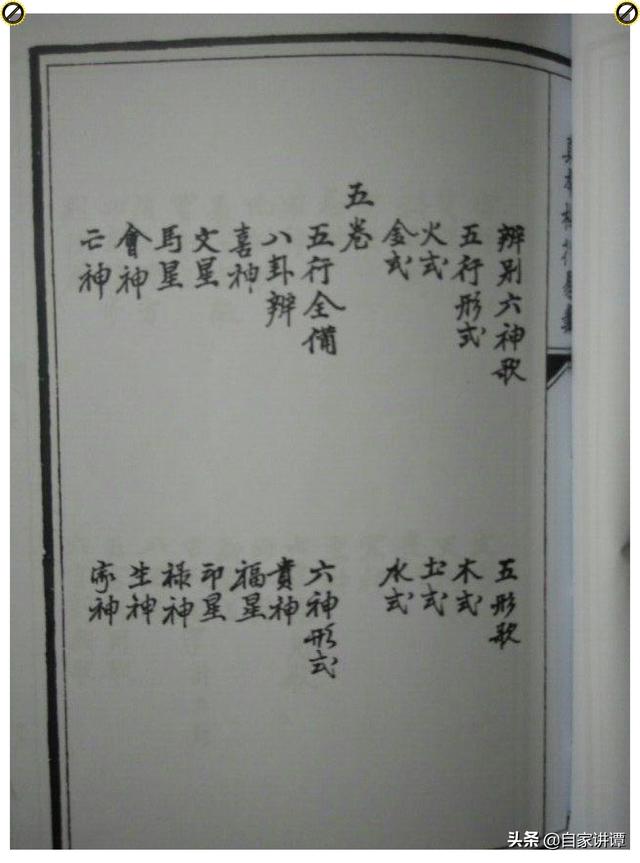 辨别六神歌 五形歌
五行形式 木式
火式 土式
金式 水式
五卷
五行全備 六神形式
八卦辨 貴神
喜神 福星
文星 印星
馬星 禄神
會神 生神
亡神 家神
头条 @自家讲谭